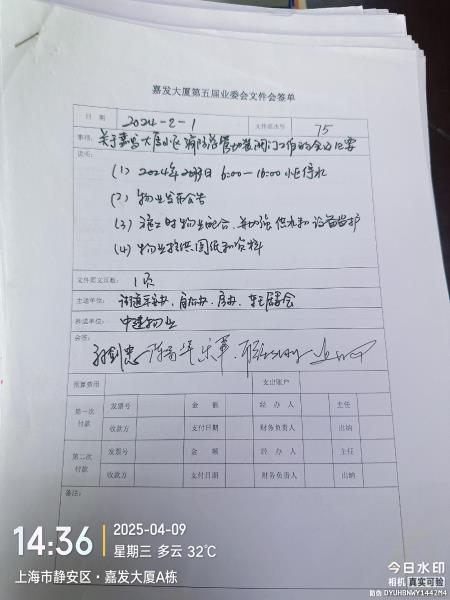 嘉发大厦第五届业委会文件会签单
日 期 2024-2-1 文件流水号 75
事项: 关于嘉发大厦小区消防总管加装阀门工作的会议纪要
说明:
(1) 2024年2月3日 8:00-16:00 小区停水
(2) 物业发布公告
(3) 施工时物业配合、并加强供水和设备监护
(4) 物业提供图纸和资料
文件原文页数: 1页
主送单位: 街道平安办、房办、居委会
抄送单位: 中建物业
会签:
预算费用 支出账户
第一次付款 发票号 金 额 经 办 人 主任
收款方 支付日期 财务负责人 出纳
第二次付款 发票号 金 额 经 办 人 主任
收款方 支付日期 财务负责人 出纳
备注:
14:36 2025-04-09
星期三 多云 32℃
上海市静安区·嘉发大厦A栋
今日水印
相机 真实可验
防伪 DYUHBNWY1442M4